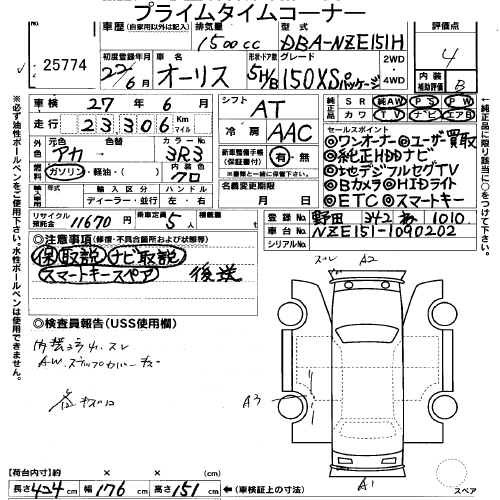 プライムタイムコーナー
25774
車歴 (自家用以外は記入)
排気量 1500cc
型式 DBA-NZE151H
評価点 4
初度登録年月 22年6月
車名 オーリス
形状・ドア数 5 H/B
グレード 150XSパッケージ
2WD
4WD
内装補助評価 B
車検 27年6月
シフト AT
純正品 SR 純AW PS PW
カワ TV ナビ エアB
走行 23,306 Km マイル
冷房 AAC
セールスポイント
◎ワンオーナー◎ユーザー買取
◎純正HDDナビ
◎地セデジフルセグTV
◎Bカメラ◎HIDライト
◎ETC◎スマートキー
外色 元色 アカ 色替 カラーNo 3R3
新車整備手帳(保証書付) 有・無
燃料 ガソリン・軽油・( )
内装色 クロ
輸入車 年式 輸入区分 ディーラー・並行
ハンドル 左・右
名義変更期限 月 日
リサイクル預託金 11670円
乗車定員 5人
積載量
登録No. 野田 342 1010
車台No. NZE151-1090202
シリアルNo.
◎注意事項(修復・不具合箇所および状態)
保 取説 ナビ取説 後送
スマートキースペア
◎検査員報告(USS使用欄)
スレ A2
A3
A1
(荷台内寸)約 × × (cm)
長さ 424cm 幅 176cm 高さ 151cm
←(車検証上の寸法)
スペア
※必ず油性ボールペンをご使用下さい。水性ボールペンは使用できません。
※純正品に限り該当に○をつけて下さい